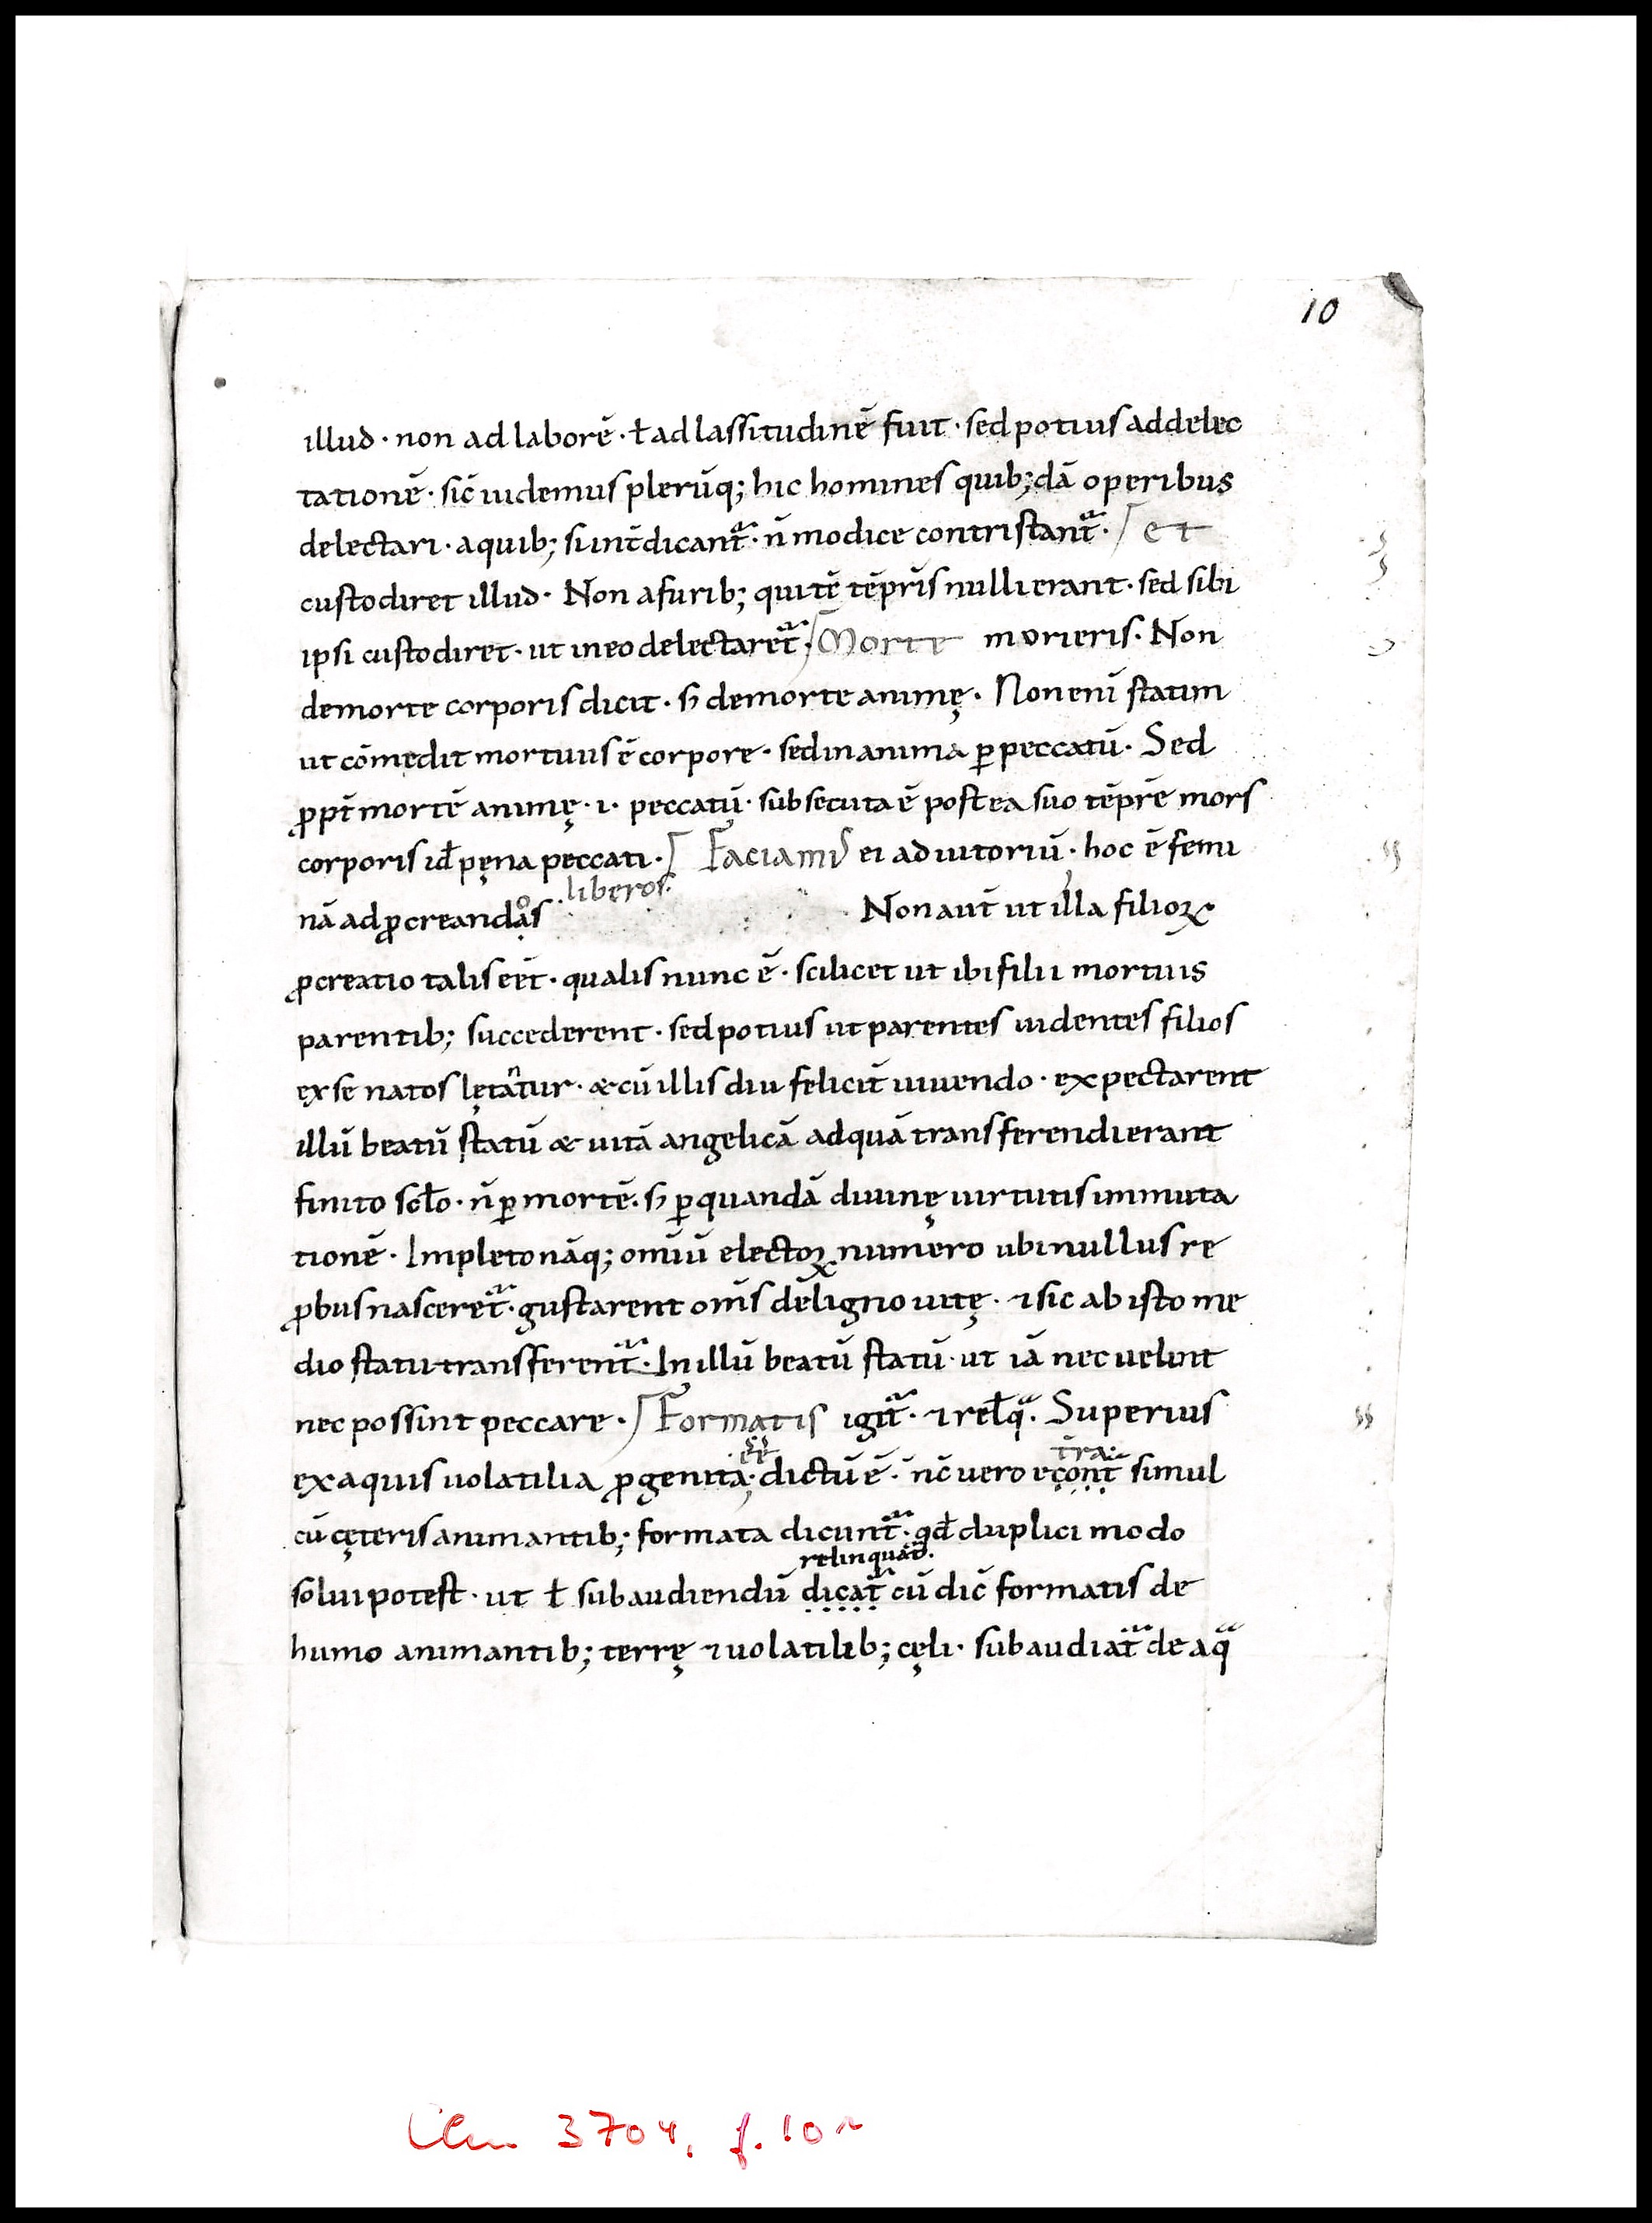 10
illud · non ad laborē · ł ad lassitudinē fuit · sed potius ad delec
tationē · sic̄ uidemus plerūq; hic homines quib;dā operibus
delectari · a quib; si int̄dicant᷑ · n̄ modice contristant᷑ · et
custodiret illud · Non a furib; qui tē tēpr̄is nulli erant · sed sibi
ipsi custodiret · ut in eo delectaret᷑ · Morte morieris · Non
de morte corporis dicit · sꝫ de morte animę · Non enī statim
ut cōmedit mortuus ē corpore · sed in anima ꝑ peccatū · Sed
ꝓpt̄ mortē animę · i · peccatū · subsecuta ē postea suo tēpr̄e mors
corporis id̄ pęna peccati · Faciamus ei adiutoriū · hoc ē femi
liberos ·
nā ad ꝓcreandaͦs Non aut̄ ut illa filioꝝ
ꝓcreatio talis eēt · qualis nunc ē · scilicet ut ibi filii mortuis
parentib; succederent · sed potius ut parentes uidentes filios
ex se natos lętāt̄ur · & cū illis diu felicit̄ uiuendo · expectarent
illū beatū statū & uitā angelicā ad quā transferendi erant
finito scl̄o · n̄ ꝑ mortē · sꝫ ꝑ quandā diuinę uirtutis inmuta
tionē · Impleto nāq; om̄iū electoꝝ numero ubi nullus re
ꝓbus nasceret᷑ · gustarent om̄s de ligno uitę · ⁊ sic ab isto me
dio statu transferent᷑ · In illū beatū statū · ut iā nec uelint
nec possint peccare · Formatis igit᷑ · ⁊ relq̄ · Superius
tra ·
ex aquis uolatilia ꝓgenita · dictū ē · nc̄ uero ẹc̣ọṇṭ simul
cū cęteris animantib; formata dicunt᷑ · qd̄ duplici modo
relinquat᷑ ·
solui potest · ut ł subaudiendū ḍịc̣ạṭ cū dic̄ formatis de
humo animantib; terrę ⁊ uolatilib; cęli · subaudiat᷑ de aq̄
Clm 3704, f. 10r